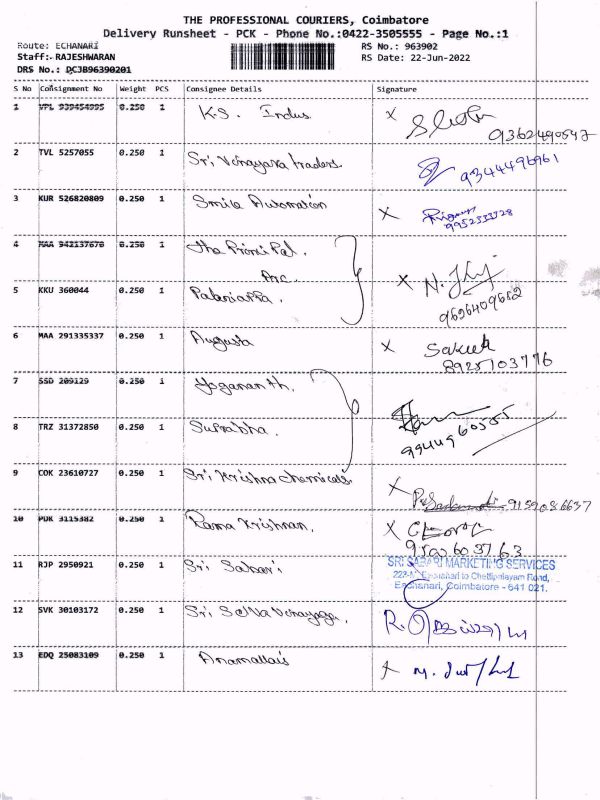 THE PROFESSIONAL COURIERS, Coimbatore
Delivery Runsheet - PCK - Phone No.:0422-3505555 - Page No.:1
Route: ECHANARI
RS No.: 963902
Staff: RAJESHWARAN
RS Date: 22-Jun-2022
DRS No.: DCJB96390201
S No Consignment No Weight PCS Consignee Details Signature
1 VPL 939454995 0.250 1 K.S. Indus X
9362490547
2 TVL 5257055 0.250 1 Sri Vinayaga traders 9344496961
3 KUR 526820809 0.250 1 Smile Automation X
9952333328
4 MAA 942137670 0.250 1 The Principal.
Arc. X
5 KKU 360044 0.250 1 Palaniappa. 9626409682
6 MAA 291335337 0.250 1 Augusta X
8925103776
7 SSD 209129 0.250 1 Yogananth.
8 TRZ 31372850 0.250 1 Suprabha. 9944960555
9 COK 23610727 0.250 1 Sri Krishna chemicals X
9159086637
10 PDK 3115382 0.250 1 Rama Krishnan. X
9500603763
11 RJP 2950921 0.250 1 Sri Sabari SRI SABARI MARKETING SERVICES
Eachanari to Chettipalayam Road,
Eachanari, Coimbatore - 641 021.
12 SVK 30103172 0.250 1 Sri Selva Vinayaga.
13 EDQ 25083109 0.250 1 Anamallais X